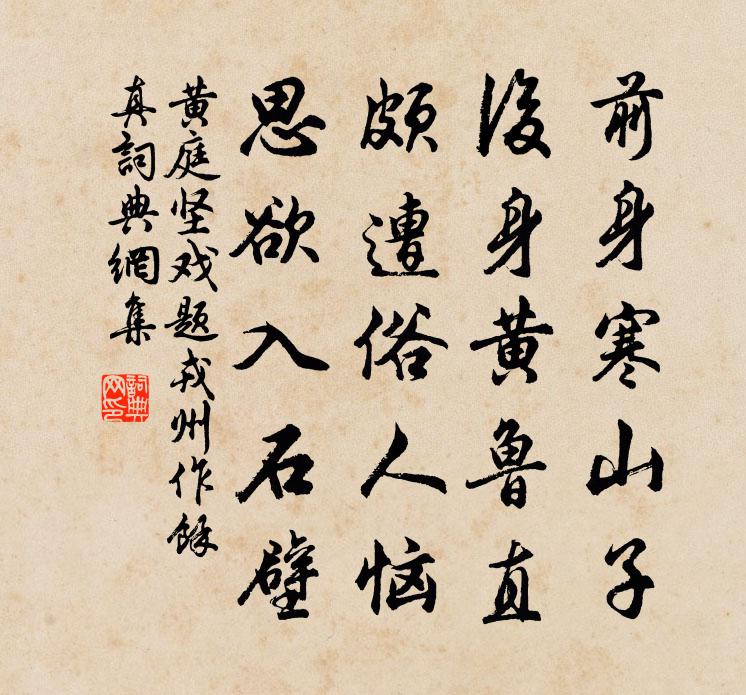 前身寒山子
後身黄魯直
頗遭俗人恼
思欲入石壁
黄庭坚戏题戎州作餘
真詞典網集
詞典
网印